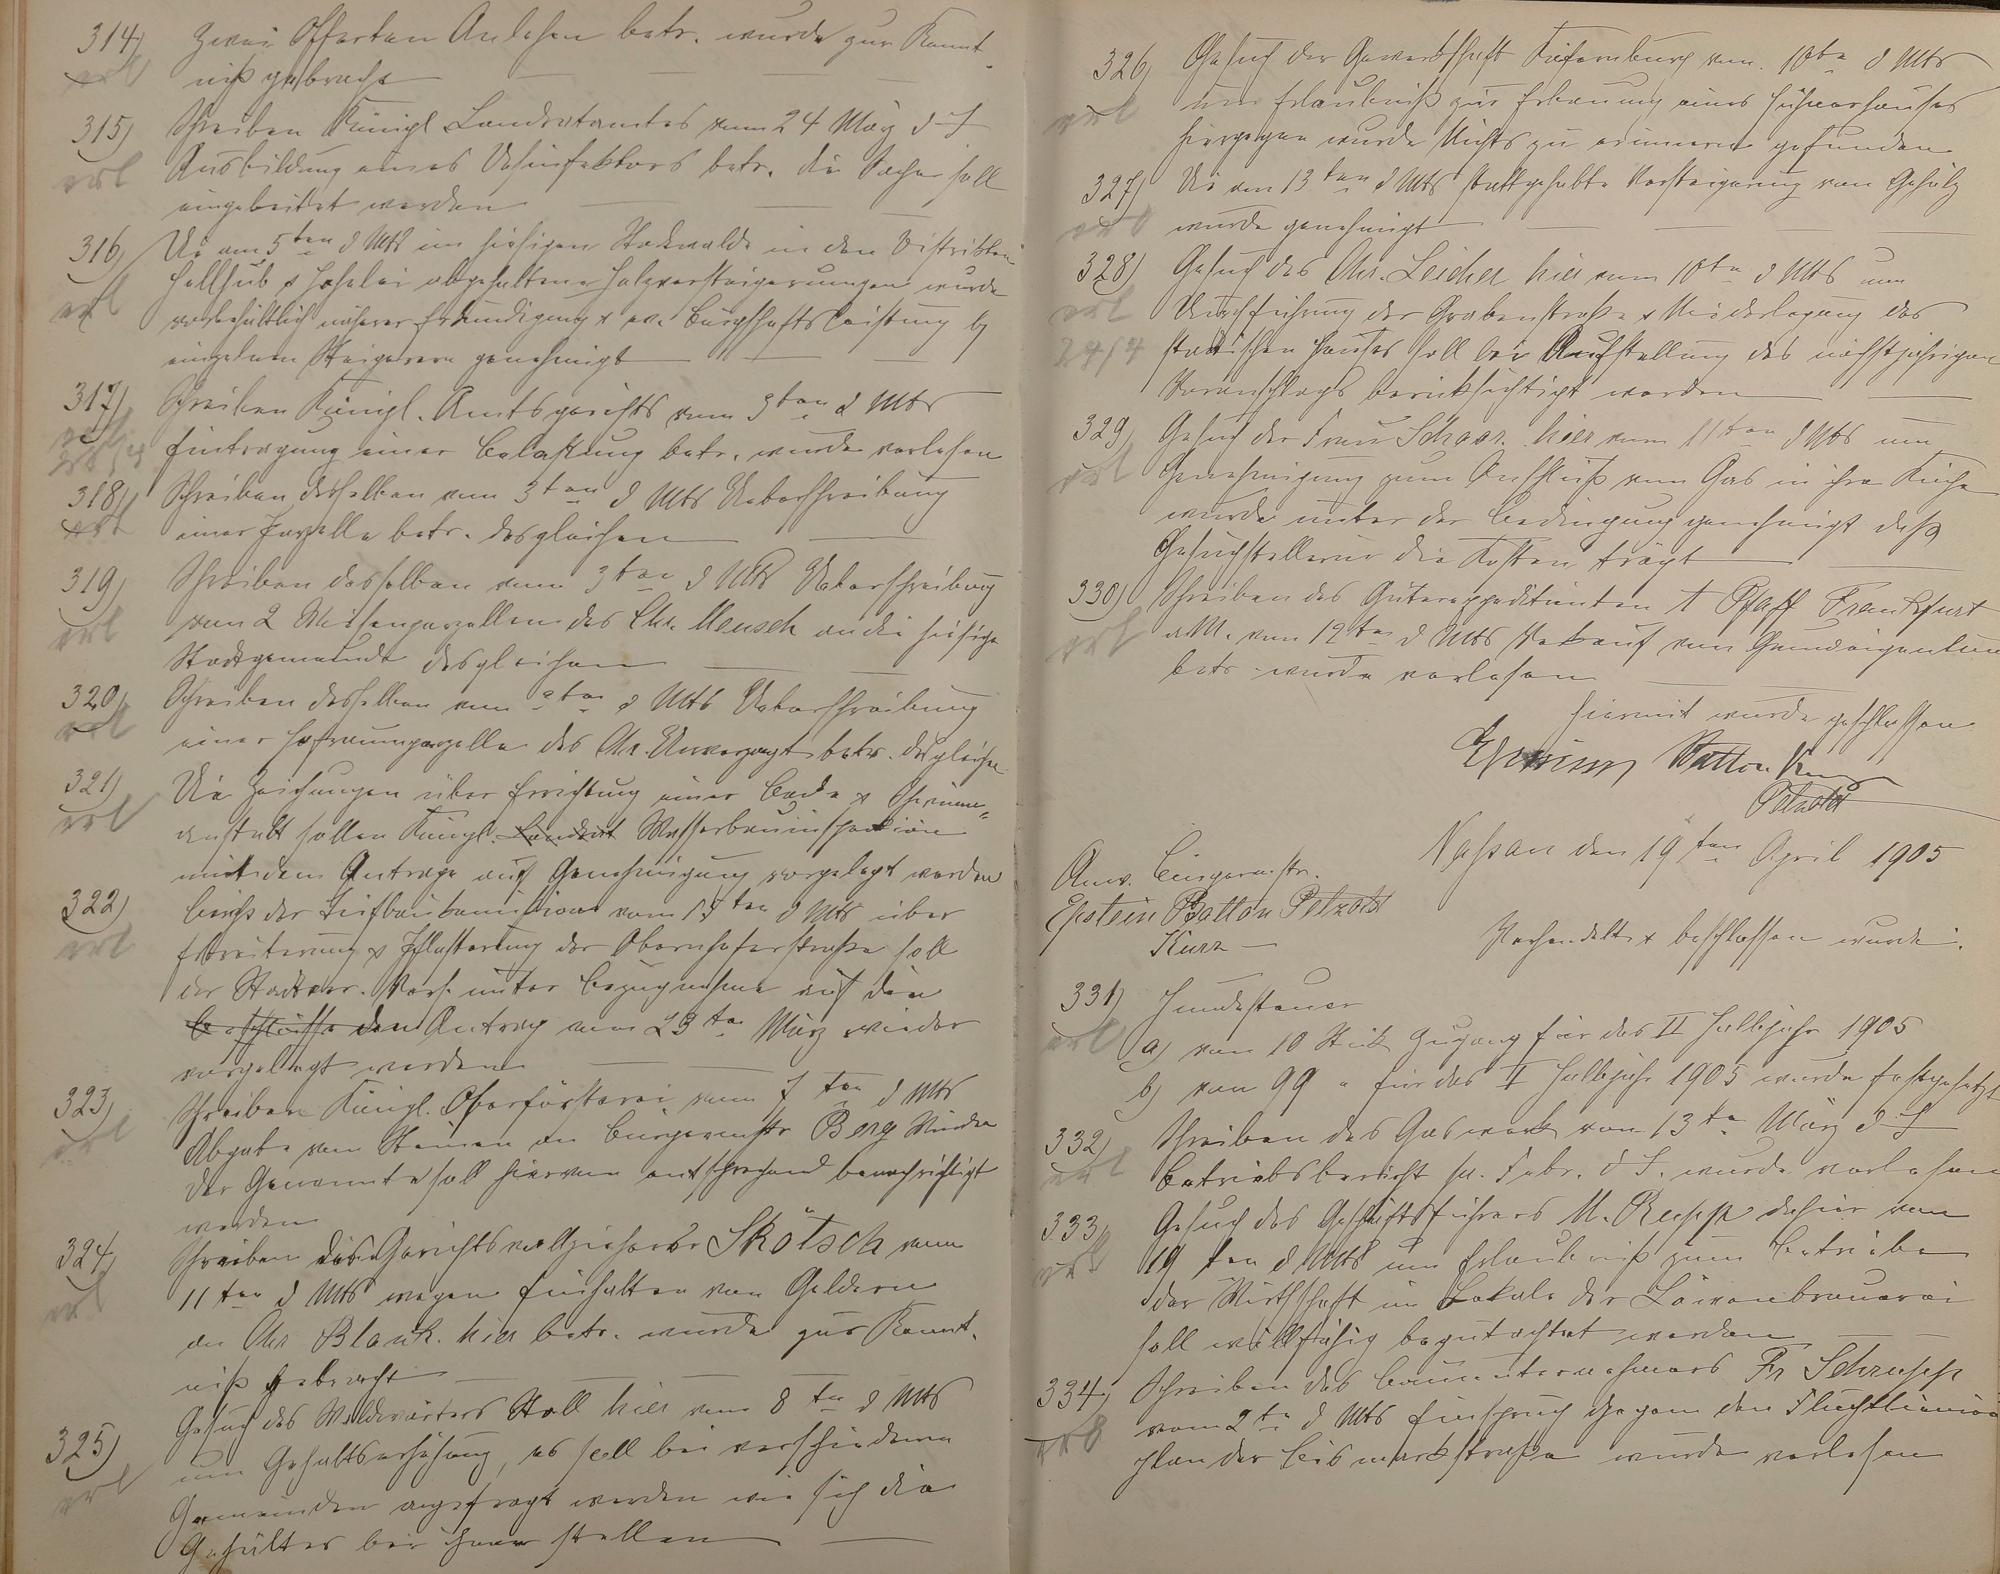 314) Zwei Offerten Anlehen betr. wurde zur Kennt-
erl niß gebracht
315) Schreiben Königl. Landratamtes vom 24 März d J
erl Ausbildung eines Desinfektors betr. die Sache soll
eingeleitet werden
316) Die am 5ten d Mts im hiesigen Stadtwalde in den Distrikten
erl abgehaltene Holzversteigerungen wurde
vorbehältlich näherer Erkundigung & ev. Bürgschaftsleistung b/
einzelnen Steigerern genehmigt
317) Schreiben Königl. Amtsgerichts vom 3ten d Mts
erl Eintragung einer Belastung betr. wurde verlesen
318) Schreiben desselben vom 3ten d Mts Ueberschreibung
erl einer Parzelle betr. desgleichen
319) Schreiben desselben vom 3ten d Mts Ueberschreibung
erl von 2 Wiesenparzellen des Chr. Mensch an die hiesige
Stadtgemeinde desgleichen
320) Schreiben desselben vom 3ten d Mts Ueberschreibung
erl einer Hofraumparzelle des Chr. Unverzagt betr. desgleichen
321) Die Zeichnungen über Errichtung einer Bade & Schwimm-
erl anstalt sollen Königl. Landrat Wasserbauinspection
mit dem Antrage auf Genehmigung vorgelegt werden
322) Beschl der Tiefbaukomission vom 15ten d Mts über
erl Erbreiterung & Pflasterung der Obernhoferstraße soll
der Stadtver. Vers. unter Bezugnahme auf den
Beschlusse den Antrag vom 23ten März wieder
vorgelegt werden
323) Schreiben Königl. Oberförsterei vom 7ten d Mts
erl Abgabe von Steinen an Bürgermstr Berg Winden
der Genannte soll hiervon entsprechend benachrichtigt
werden
324) Schreiben des Gerichtsvollziehers Skötsch vom
erl 11ten d Mts wegen Einhalten von Geldern
an Chr Blank. hier betr. wurde zur Kennt-
niß gebracht
325) Gesuch des Waldwärters Stoll hier vom 8ten d Mts
erl um Gehaltserhöhung, es soll bei verschiedenen
Gemeinden angefragt werden wie sich die
Gehälter bei ihnen stellen
326) Gesuch der Gewerkschaft vom 10ten d Mts
erl um Erlaubniß zur Erbauung eines Hühnerhauses
hiergegen wurde Nichts zu erinnern gefunden
327) Die am 13ten d Mts stattgehabte Versteigerung von Gehölz
erl wurde genehmigt
328) Gesuch des Chr. Leicher hier vom 10ten d Mts um
erl Durchführung der Grabenstraße & Niederlegung des
24/4 städtischen Hauses soll bei Aufstellung des nächstjährigen
Voranschlags berücksichtigt werden
329) Gesuch der Frau Schaar. hier vom 11ten d Mts um
erl Genehmigung zum Anschluß von Gas in ihre Küche
wurde unter der Bedingung genehmigt daß
Gesuchstellerin die Kosten trägt
330) Schreiben des Güterexpedienten A Pfaff Frankfurt
erl a M. vom 12ten d Mts Verkauf von Grundeigentum
betr. wurde verlesen
Hiermit wurde geschlossen
Epstein Batton Kurz
Petzoldt
Nassau den 19ten April 1905
Anw. Bürgermstr.
Epstein Batton Petzoldt
Kurz
Verhandelt & beschlossen wurde.
331) Hundesteuer
erl a) von 10 Stück Zugang für das II Halbjahr 1905
b) von 99 " für das I Halbjahr 1905 wurde festgesetzt
332) Schreiben des Gaswerk vom 13ten März d J
erl Betriebsbericht pr. Febr. d J. wurde verlesen
333) Gesuch des Geschäftsführers M. Repp dahier vom
erl 19ten d Mts um Erlaubniß zum Betriebe
der Wirthschaft im Lokale der Löwenbrauerei
soll willfährig begutachtet werden
334) Schreiben des Bauunternehmers Fr Schrupp
erl vom 2ten d Mts Einspruch gegen den Fluchtlinien
plan der Bismarkstraße wurde verlesen